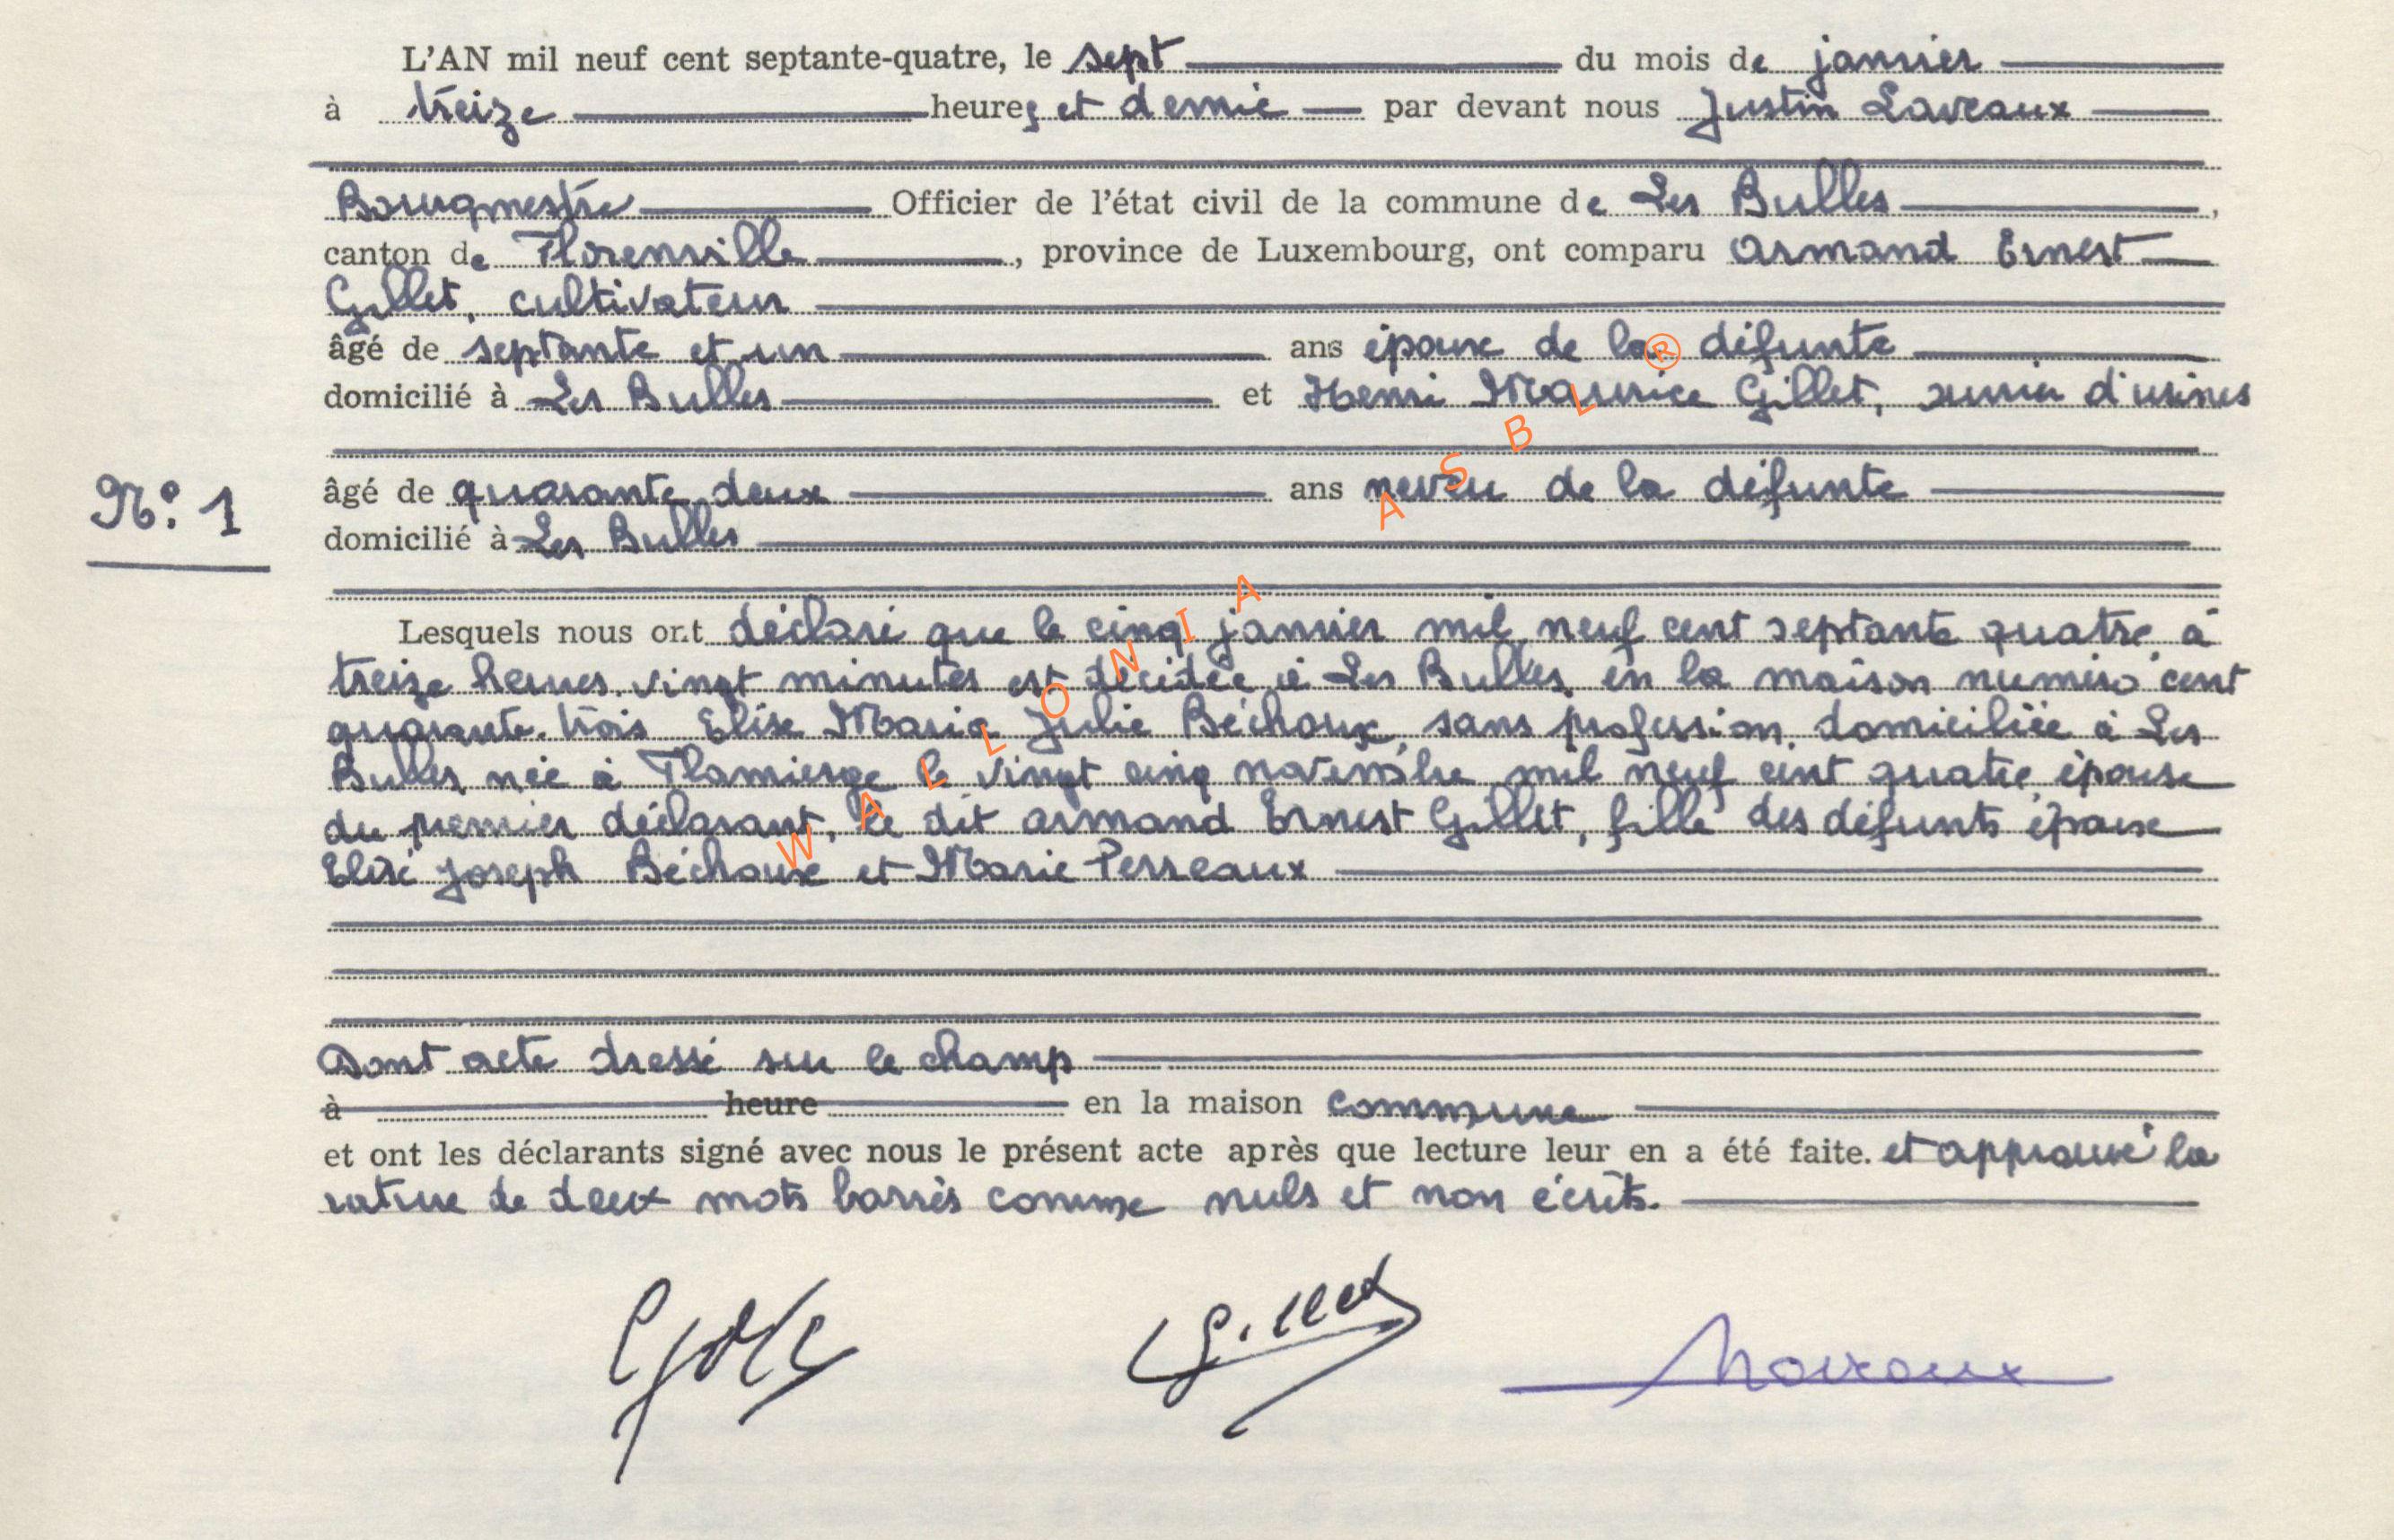 L'AN mil neuf cent septante-quatre, le sept du mois de janvier
à treize heures et demie par devant nous Justin Laveaux
Bourgmestre Officier de l'état civil de la commune de Les Bulles,
canton de Florenville, province de Luxembourg, ont comparu Armand Ernest
Gillet, cultivateur
âgé de septante et un ans époux de la défunte
domicilié à Les Bulles et Henri Maurice Gillet, ouvrier d'usines
N° 1
âgé de quarante deux ans neveu de la défunte
domicilié à Les Bulles
Lesquels nous ont déclaré que le cinq janvier mil neuf cent septante quatre à
treize heures vingt minutes est décédée à Les Bulles, en la maison numéro cent
quarante-trois Elise Marie Julie Béchoux, sans profession, domiciliée à Les
Bulles, née à Flamierge le vingt cinq novembre mil neuf cent quatre, épouse
du premier déclarant, le dit Armand Ernest Gillet, fille des défunts époux
Elisé Joseph Béchoux et Marie Perreaux
Dont acte dressé sur le champ
à heure en la maison communale
et ont les déclarants signé avec nous le présent acte après que lecture leur en a été faite. et approuvé la
rature de deux mots barrés comme nuls et non écrits.
Gillet
WALLONIA ASBL ®